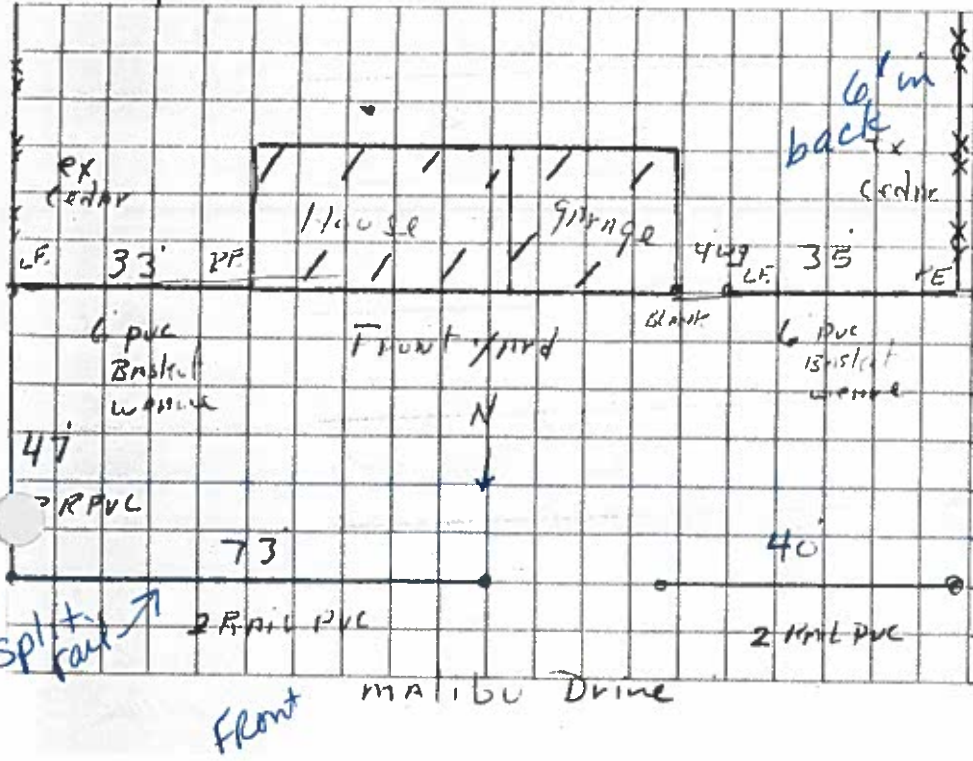 6' in
back
ex
cedar
ex
Cedar
House
Garage
LF.
33'
PF.
4'4g
LF.
35'
Blank
6 PVC
Basket
weave
Front yard
6 PVC
Basket
weave
N
47'
R PVC
73'
40'
Split
rail
2 Rail PVC
2 Rail PVC
Malibu Drive
FRont